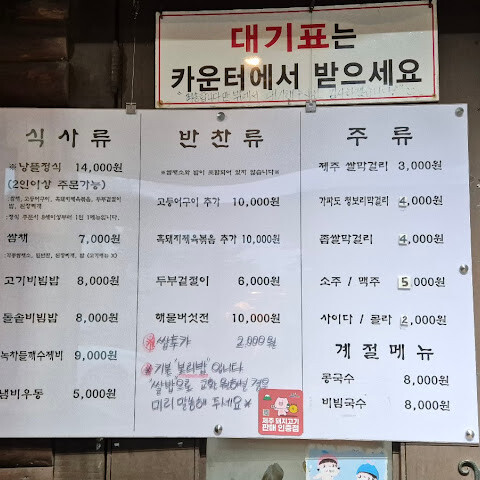 대기표는
카운터에서 받으세요
식사류
※낭뜰정식 14,000원
(2인이상 주문가능)
쌈채 7,000원
고기비빔밥 8,000원
돌솥비빔밥 8,000원
녹차들깨수제비 9,000원
냄비우동 5,000원
반찬류
고등어구이 추가 10,000원
흑돼지제육볶음 추가 10,000원
두부겉절이 6,000원
해물버섯전 10,000원
쌈추가 2,000원
기본 '보리밥' 입니다
쌀밥으로 교환 원하실 경우
미리 말씀해 주세요
제주 돼지고기
판매 인증점
주류
제주 쌀막걸리 3,000원
가파도 청보리막걸리 4,000원
좁쌀막걸리 4,000원
소주 / 맥주 5,000원
사이다 / 콜라 2,000원
계절메뉴
콩국수 8,000원
비빔국수 8,000원